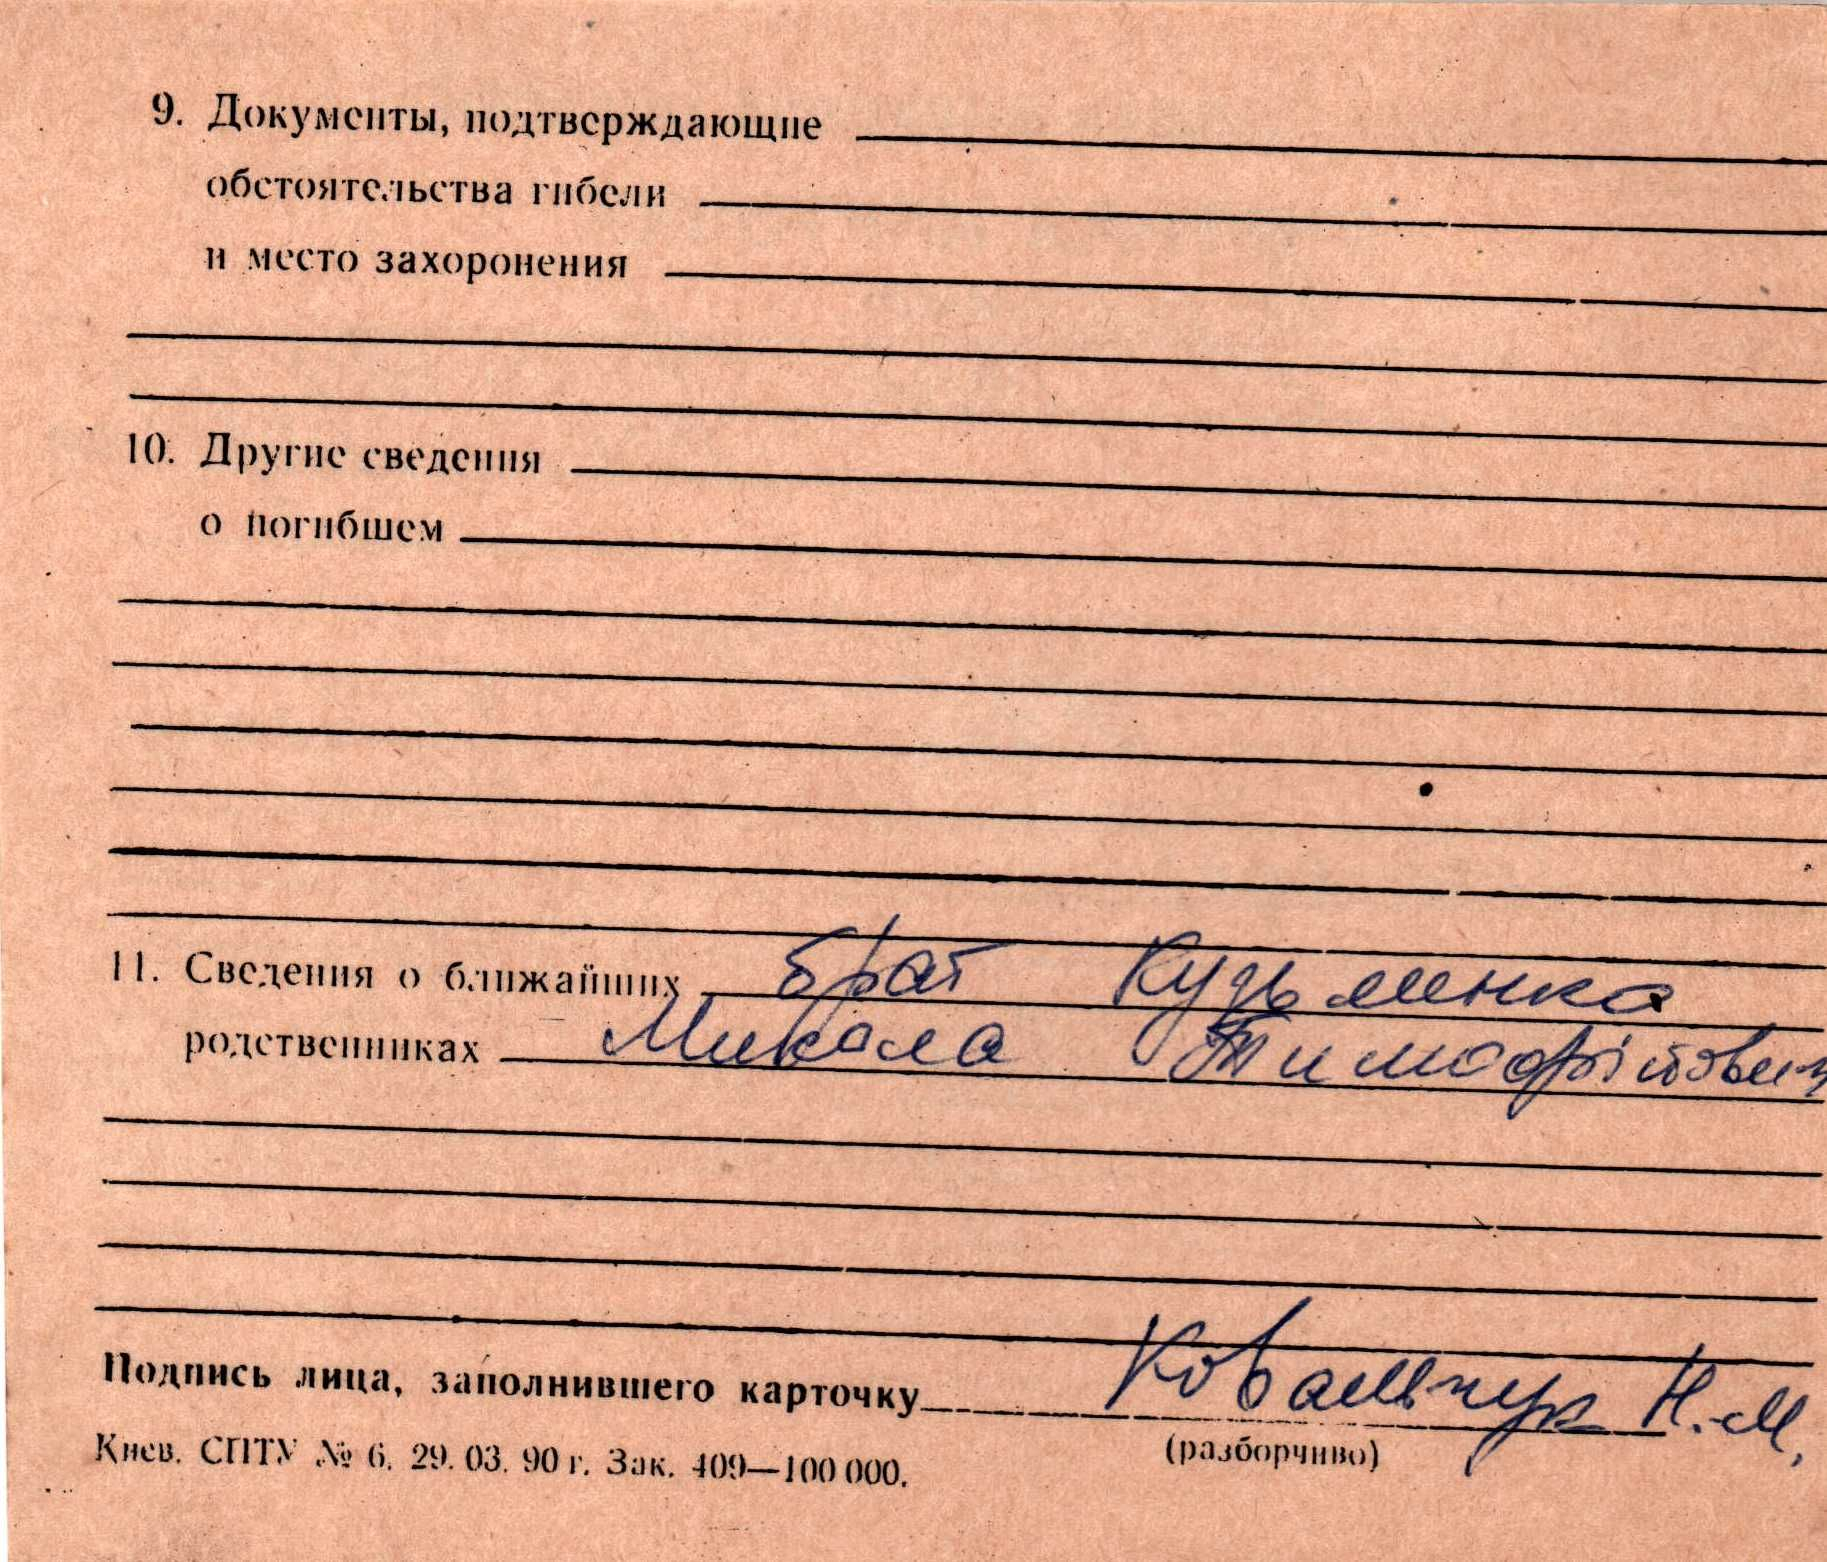 9. Документы, подтверждающие
обстоятельства гибели
и место захоронения
10. Другие сведения
о погибшем
11. Сведения о ближайших брат Кузьменко
родственниках Микола Тимофійович
Подпись лица, заполнившего карточку Ковальчук Н.М.
(разборчиво)
Киев. СПТУ № 6. 29. 03. 90 г. Зак. 409—100 000.